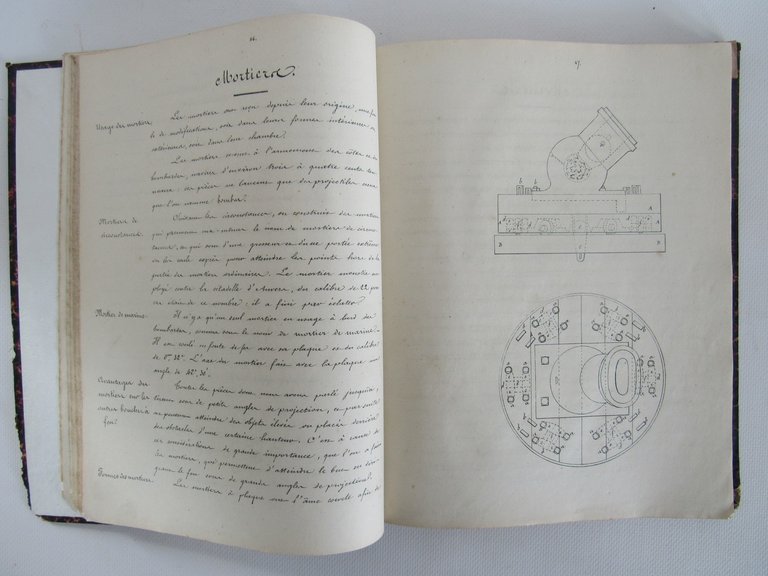 Mortiers.
Usage des mortiers
Les mortiers ont reçu depuis leur origine,
de modifications, soit dans leurs formes intérieures
extérieures, soit dans leur chambre.
Les mortiers à l'armement des côtes
bombardes, d'environ trois à quatre cents
ces pièces ne lancent que des projectiles
que l'on nomme: bombes.
Mortiers de
circonstance.
les circonstances, on construit des mortiers
qui prennent le nom de mortiers de
et qui sont d'une grosseur et d'une portée
pour atteindre les points hors de la
portée des mortiers ordinaires. Le mortier monstre
contre la citadelle d'Anvers, du calibre de 22
de ce nombre: il a fini par éclater.
Mortier de marine.
Il n'y a qu'un seul mortier en usage à bord des
bombardes, connu sous le nom de mortier de marine.
Il est coulé en fonte de fer avec sa plaque et du calibre
de 0m,32c. L'axe du mortier fait avec la plaque un
angle de 42°,30'.
Avantages des
mortiers sur les
autres bouches à
feu.
Toutes les pièces dont nous avons parlé jusqu'ici,
tirent sous de petits angles de projection, et par suite
ne peuvent atteindre des objets élevés ou placés derrière
des obstacles d'une certaine hauteur. C'est à cause de
ces considérations de grande importance, que l'on a
les mortiers, qui permettent d'atteindre le but en
le feu sous de grands angles de projection.
Formes des mortiers.
Les mortiers à plaque ont l'âme courte afin de
17.
A
A
B
B